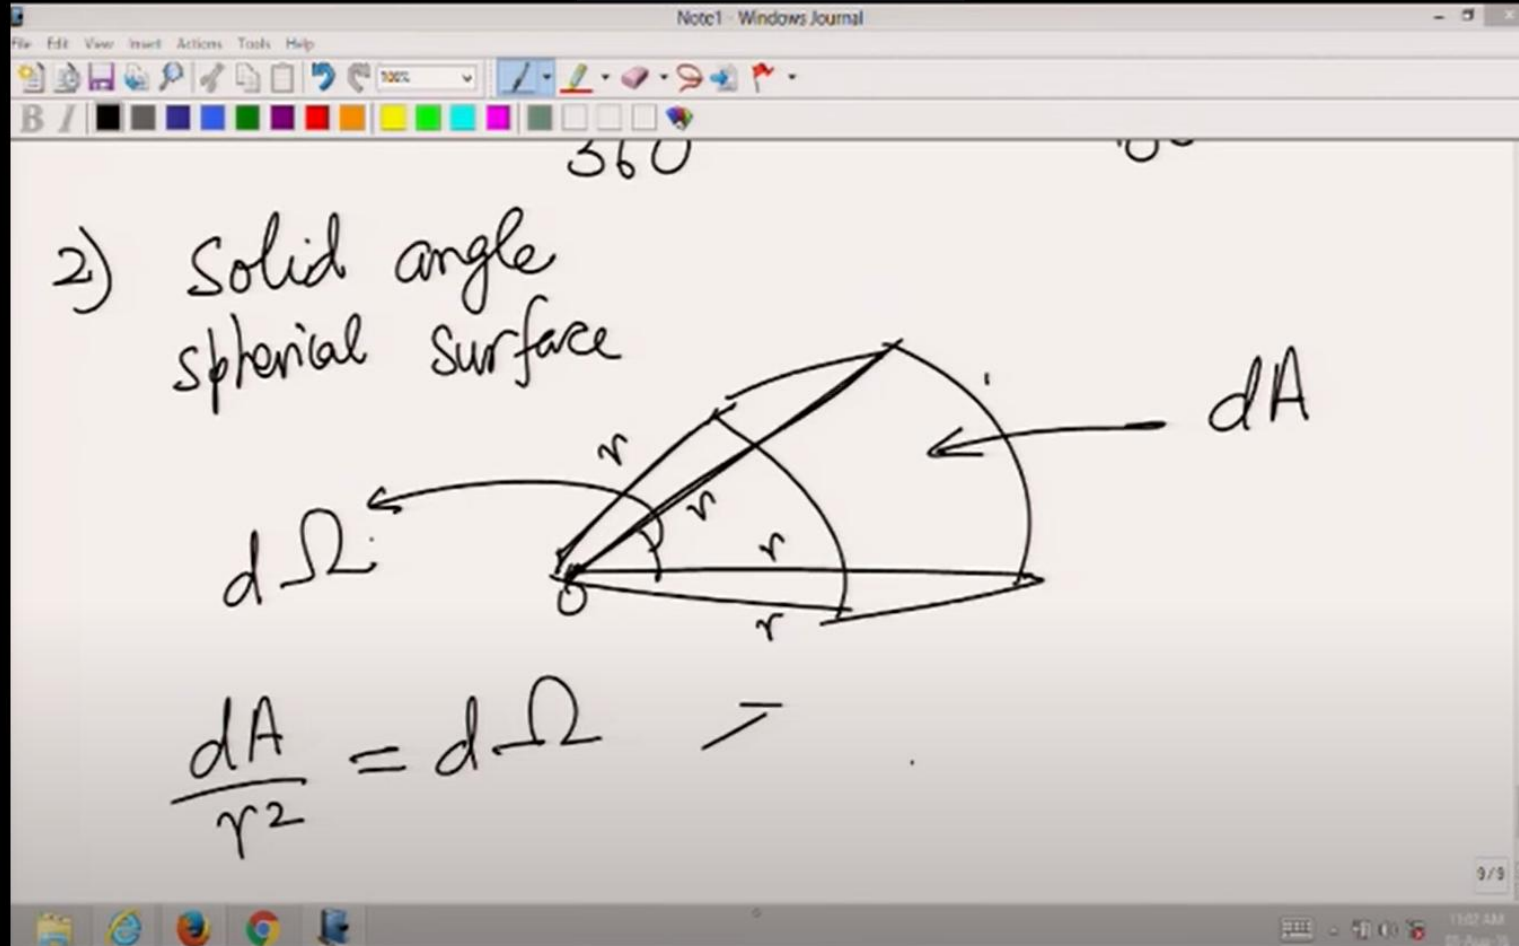 Note1 - Windows Journal
File Edit View Insert Actions Tools Help
100%
B I
360
2) Solid angle
spherical surface
dA
r
r
r
r
dΩ
O
dA/r² = dΩ
9/9
11:02 AM